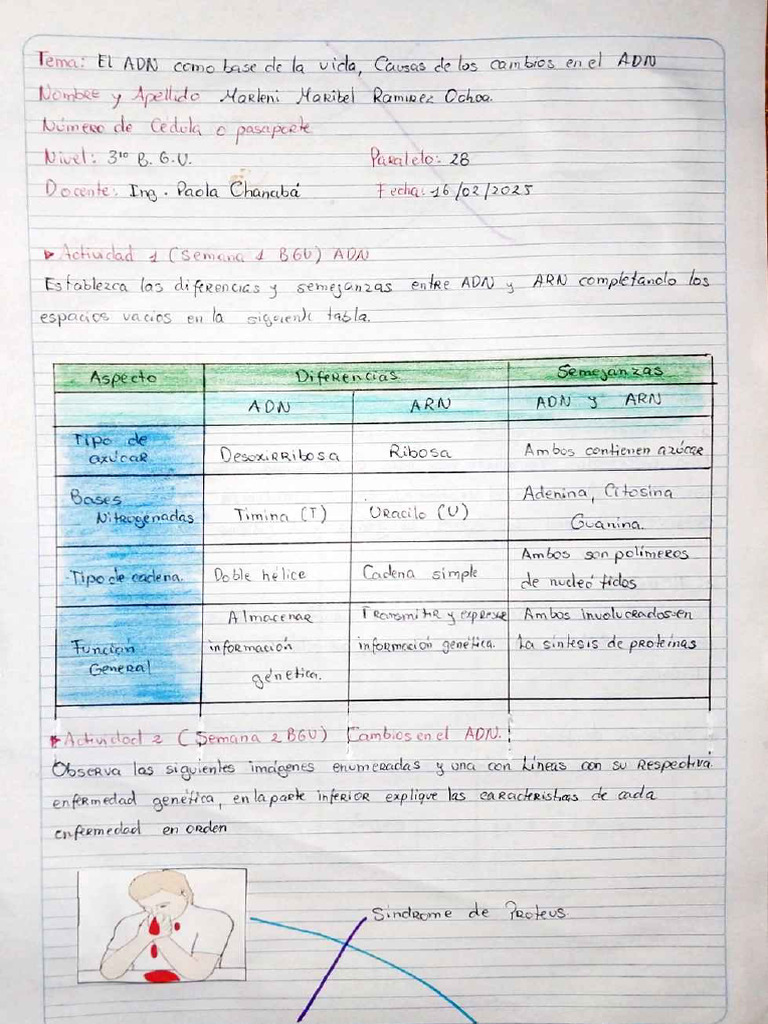 Tema: El ADN como base de la vida, Causas de los cambios en el ADN
Nombre y Apellido Marleni Maribel Ramirez Ochoa.
Número de Cédula o pasaporte
Nivel: 3ro B. G.U. Paralelo: 28
Docente: Ing. Paola Chanabá Fecha: 16/02/2025
Actividad 1 (Semana 1 BGU) ADN
Establezca las diferencias y semejanzas entre ADN y ARN completando los
espacios vacios en la siguiente tabla.
Aspecto Diferencias Semejanzas
ADN ARN ADN y ARN
Tipo de azúcar Desoxirribosa Ribosa Ambos contienen azúcar
Bases Nitrogenadas Timina (T) Uracilo (U) Adenina, Citosina Guanina.
Tipo de cadena. Doble hélice Cadena simple Ambos son polímeros de nucleótidos
Función General Almacenar información génetica. Transmitir y expresar información genética. Ambos involucrados en la síntesis de proteínas
Actividad 2 (Semana 2 BGU) Cambios en el ADN.
Observa las siguientes imágenes enumeradas y una con Líneas con su respectiva
enfermedad genética, en la parte inferior explique las caracteristicas de cada
enfermedad en orden
Síndrome de Proteus.